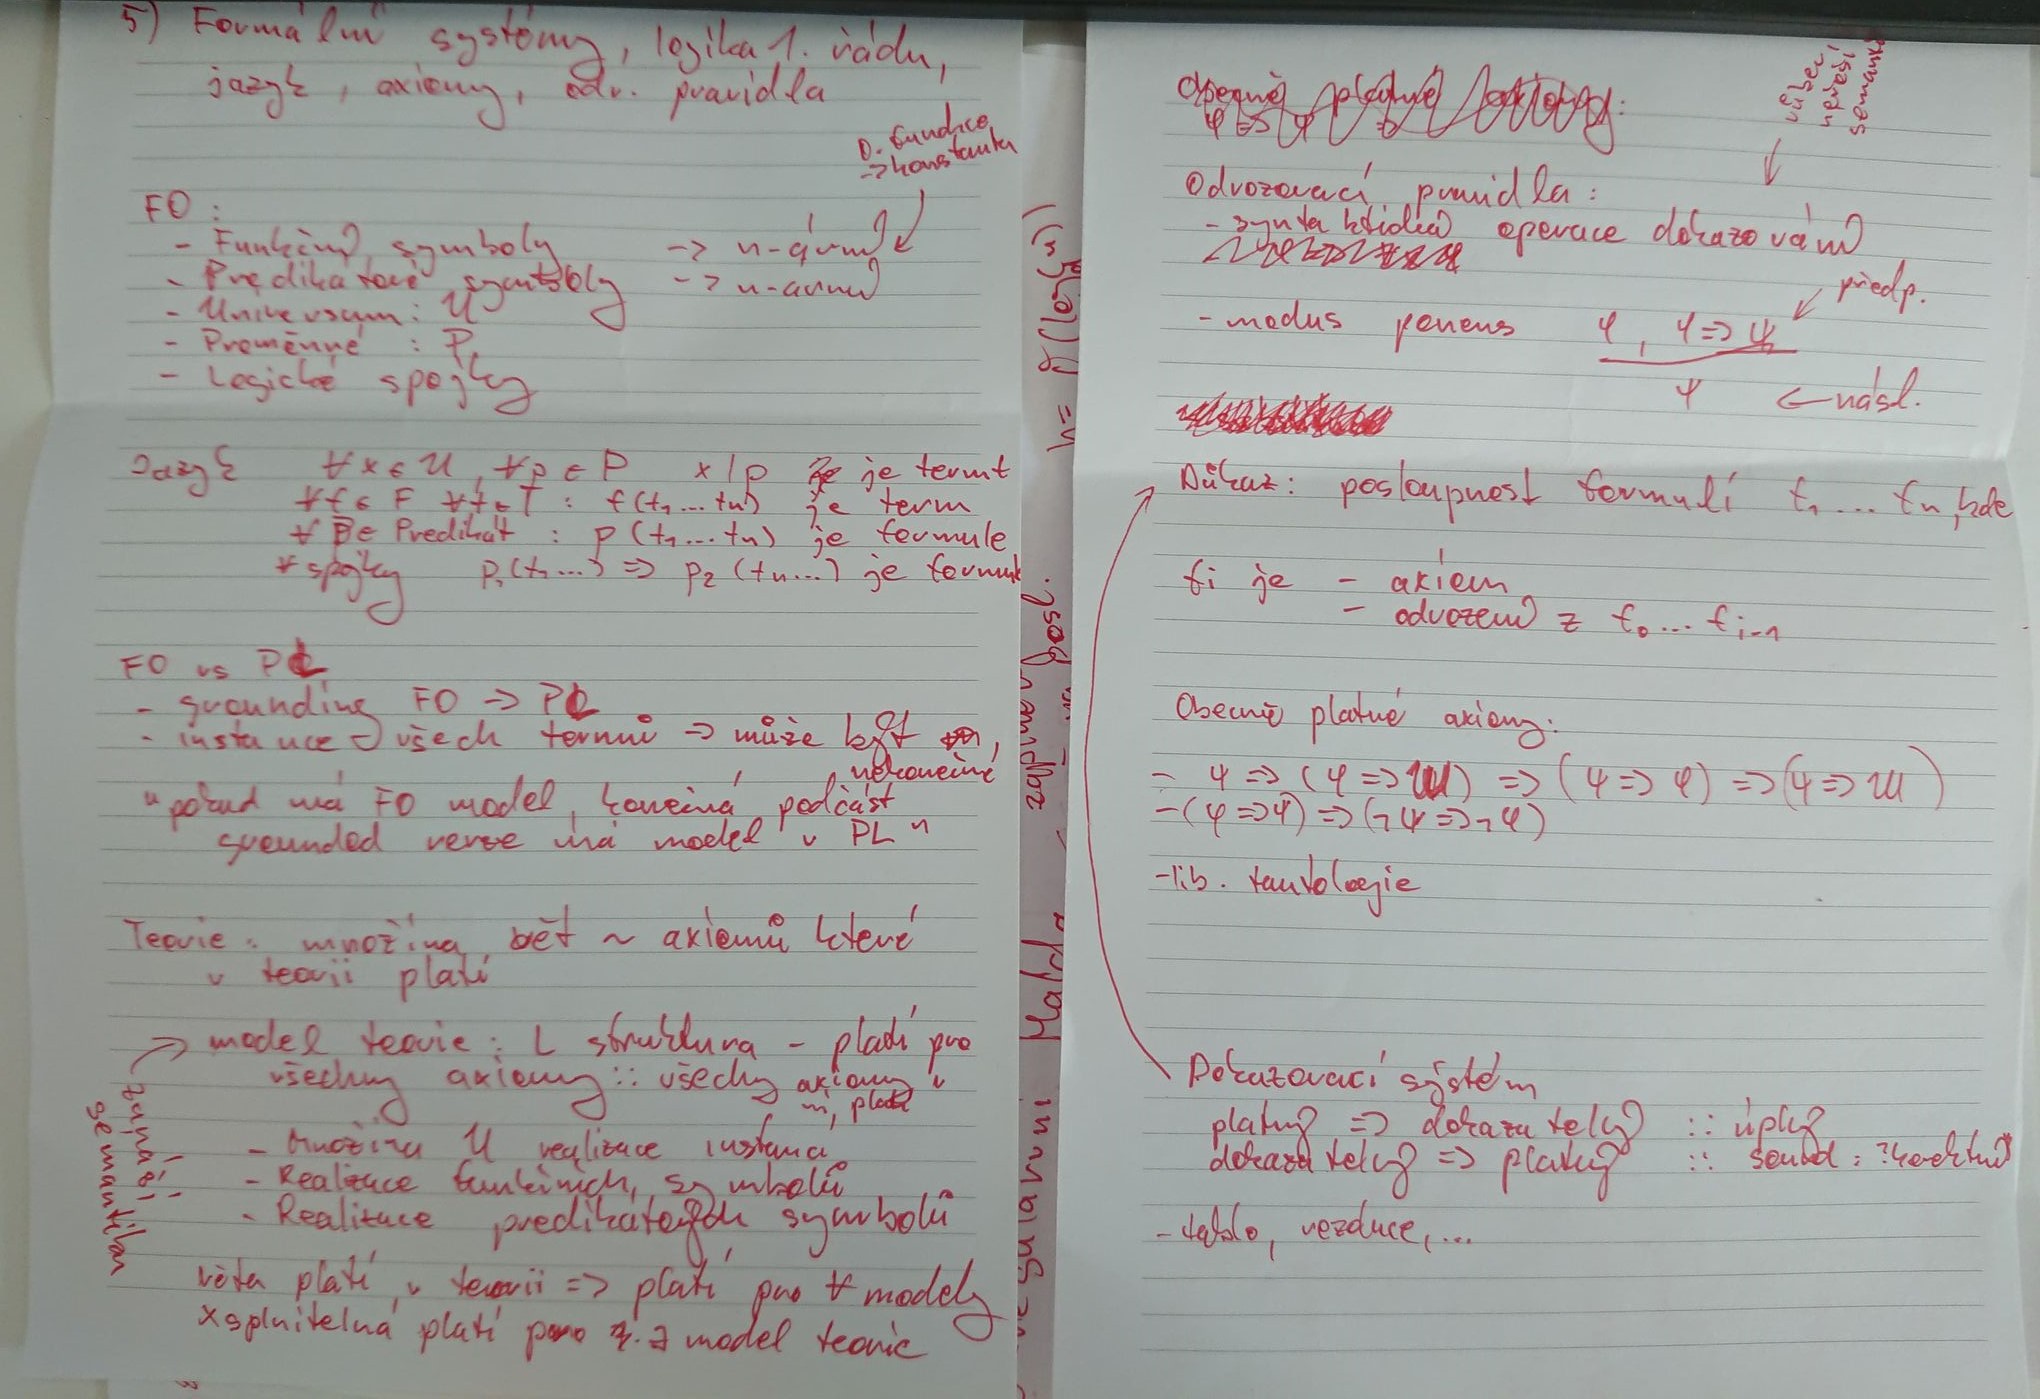 5) Formální systémy, logika 1. řádu,
jazyk, axiomy, odv. pravidla
0. funkce
-> konstanta
FO:
- Funkční symboly -> n-ární
- Predikátové symboly -> n-ární
- Universum: U
- Proměnné : P
- Logické spojky
Jazyk ∀x ∈ U, ∀p ∈ P x/p je term
∀f ∈ F ∀t ∈ T : f(t1...tn) je term
∀ P ∈ Predikát : p(t1...tn) je formule
∀ spojky p1(t1...) => p2(tn...) je formule
FO vs PL
- grounding FO => PL
- instance všech termů => může být
nekonečné
"pokud má FO model, konečná podčást
grounded verze má model v PL"
Teorie: množina vět ~ axiomů které
v teorii platí
-> model teorie: L struktura - platí pro
všechny axiomy :: všechy axiomy v
ní platí
zajnáší
sémantiku
- množina U realizace instancí
- Realizace funkčních symbolů
- Realizace predikátových symbolů
věta platí v teorii => platí pro ∀ modely
x splnitelná platí pro ž. ∃ model teorie
vůbec
nepřeší
Odvozovací pravidla:
- syntaktická operace dokazování
- modus ponens φ, φ => ψ <- předp.
ψ <- násl.
Důkaz: posloupnost formulí f1 ... fn, kde
fi je - axiom
- odvození z f0 ... fi-1
Obecně platné axiomy:
- φ => (ψ => Ш) => (φ => ψ) => (φ => Ш)
- (φ => ψ) => (¬ψ => ¬φ)
- lib. tautologie
Dokazovací systém
platný => dokazatelný :: úplný
dokazatelný => platný :: sound : ?korektní
- tablo, rezoluce, ...